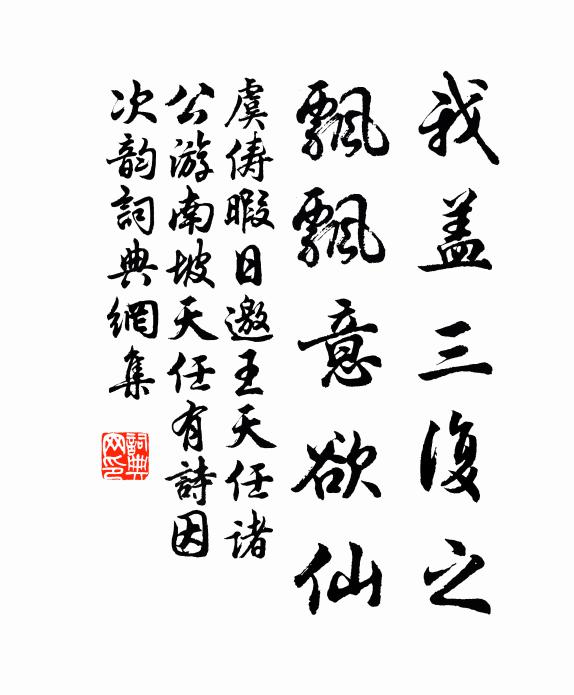 我盖三復之
飄飄意欲仙
虞儔暇日邀王天任諸
公游南坡天任有詩因
次韵詞典網集
詞典網印